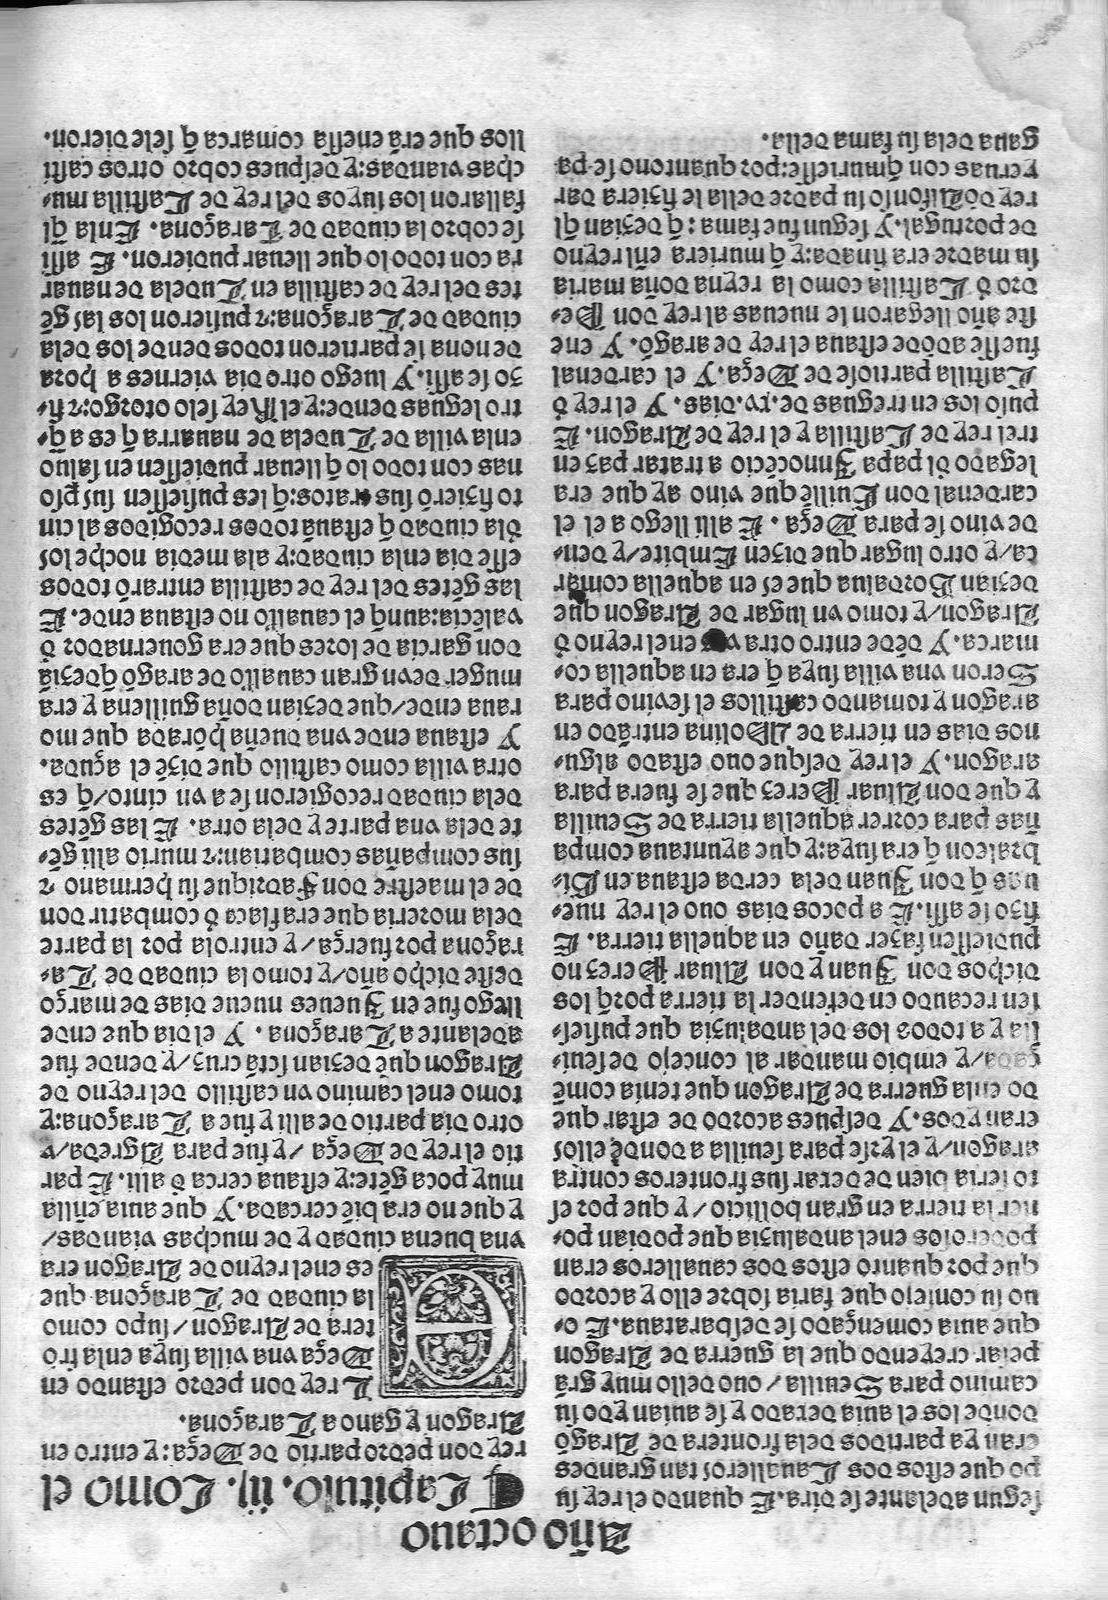 Año octauo
segun adelante se dira. E quando el rey su
po que estos dos Caualleros tan grandes
eran ya partidos dela frontera de Aragõ
donde los el auia dexado y se auian ydo su
camino para Seuilla / ouo dello muy grã
pesar creyendo que la guerra de Aragon
que auia comẽçado se desbarataua. E o-
uo su consejo que faria sobre ello y acordo
que por quanto estos dos caualleros eran
poderosos enel andaluzia que podrian po-
ner la tierra en gran bollicio / y que por esto
seria bien de dexar sus fronteros contra
aragon / y el yrse para seuilla adonde ellos
eran ydos. Y despues acordo de estar que
do enla guerra de Aragon que tenia come
çada / y embio mandar al concejo de seui-
lla y a todos los del andaluzia que pusies-
sen recaudo en defender la tierra porq̃ los
dichos don Juan y don Aluar Perez no
pudiessen fazer daño en aquella tierra. E
fizo se assi. E a pocos dias ouo el rey nue-
uas q̃ don Juan dela cerda estaua en Gi-
braleon q̃ era suya: y que ayuntaua compa
ñas para correr aquella tierra de Seuilla
y que don Aluar Perez que se fuera para
aragon. Y el rey desque ouo estado algu-
nos dias en tierra de Molina entrãdo en
aragon y tomando castillos el se vino para
Seron vna villa suya q̃ era en aquella co-
marca. Y dẽde entro otra vez enel reyno d̃
Aragon / y tomo vn lugar de Aragon que
dezian Bordalua que es en aquella comar
ca / y otro lugar que dizen Embite / y den-
de vino se para Deça. E alli llego a el el
cardenal don Guillẽ que vino ay que era
legado dl papa Innocẽcio a tratar paz en
trel rey de Castilla y el rey de Aragon. E
puso los en treguas de .xv. dias. Y el rey d̃
Castilla partiose de Deça. Y el cardenal
fuesse adõde estaua el rey de aragõ. Y ene
ste año llegaron le nueuas al rey don Pe-
dro d̃ Castilla como la reyna doña maria
su madre era finada: y q̃ muriera enl reyno
de portugal. Y segun fue fama: q̃ dezian q̃l
rey dõ Alfonso su padre della le fiziera dar
yeruas con q̃ muriesse: por quanto no se pa
gaua dela su fama della.
¶ Capitulo .iij. Como el
rey don pedro partio de Deça: y entro en
Aragon y gano a Taraçona.
EL rey don pedro estando en
Deça vna villa suya enla frõ
tera de Aragon / supo como
la ciudad de Taraçona que
es enel reyno de Aragon era
vna buena ciudad y de muchas viandas /
y que no era biẽ cercada. Y que auia enlla
muy poca gẽte: y estaua cerca d̃ alli. E par
tio el rey de Deça / y fue para Agreda / y
otro dia partio de alli y fue a Taraçona: y
tomo enel camino vn castillo del reyno de
Aragon que dezian scta cruz / y dende fue
adelante a Taraçona. Y el dia que ende
llego fue en Jueues nueue dias de março
deste dicho año / y tomo la ciudad de Ta-
raçona por fuerça / y entrola por la parte
dela moreria que era flaca d̃ combatir don
de el maestre don Fadrique su hermano z
sus compañas combatian: z murio alli gẽ-
te dela vna parte y dela otra. E las gẽtes
dela ciudad recogieron se a vn cinto / q̃ es
otra villa como castillo que dizẽ el açuda.
Y estaua ende vna dueña hõrada que mo
raua ende / que dezian doña guillena y era
muger de vn gran cauallo de aragõ q̃ dezian
don garcia de lores que era gouernador d̃
valẽcia: aunq̃ el cauallo no estaua ende. E
las gẽtes del rey de castilla entrarõ todos
esse dia enla ciudad: y ala media noche los
dla ciudad q̃ estauã todos recogidos al cin
to fizierõ sus tratos: q̃ les pusiessen sus ꝑso
nas con todo lo q̃ lleuar pudiessen en saluo
enla villa de Tudela de nauarra q̃ es a q̃-
tro leguas dende: y el Rey selo otorgo: z fi-
zo se assi. Y luego otro dia viernes a hora
de nona se partieron todos dende los dela
ciudad de Taraçona: z pusieron los las gẽ
tes del rey de castilla en Tudela de nauar
ra con todo lo que lleuar pudieron. E assi
se cobro la ciudad de Taraçona. Enla q̃l
fallaron los suyos del rey de Castilla mu-
chas viandas: y despues cobro otros casti
llos que erã enessa comarca q̃ sele dieron.